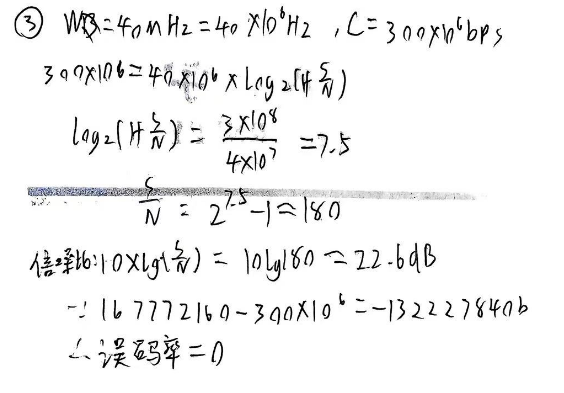 ③ WB=40MHz=40×10⁶Hz，C=300×10⁶bps
300×10⁶=40×10⁶×log₂(1+S/N)
log₂(1+S/N)=3×10⁸/4×10⁷=7.5
S/N=2^7.5-1≈180
信噪比:10×lg(S/N)=10lg180≈22.6dB
∵167772160-300×10⁶=-132227840b
∴误码率=0